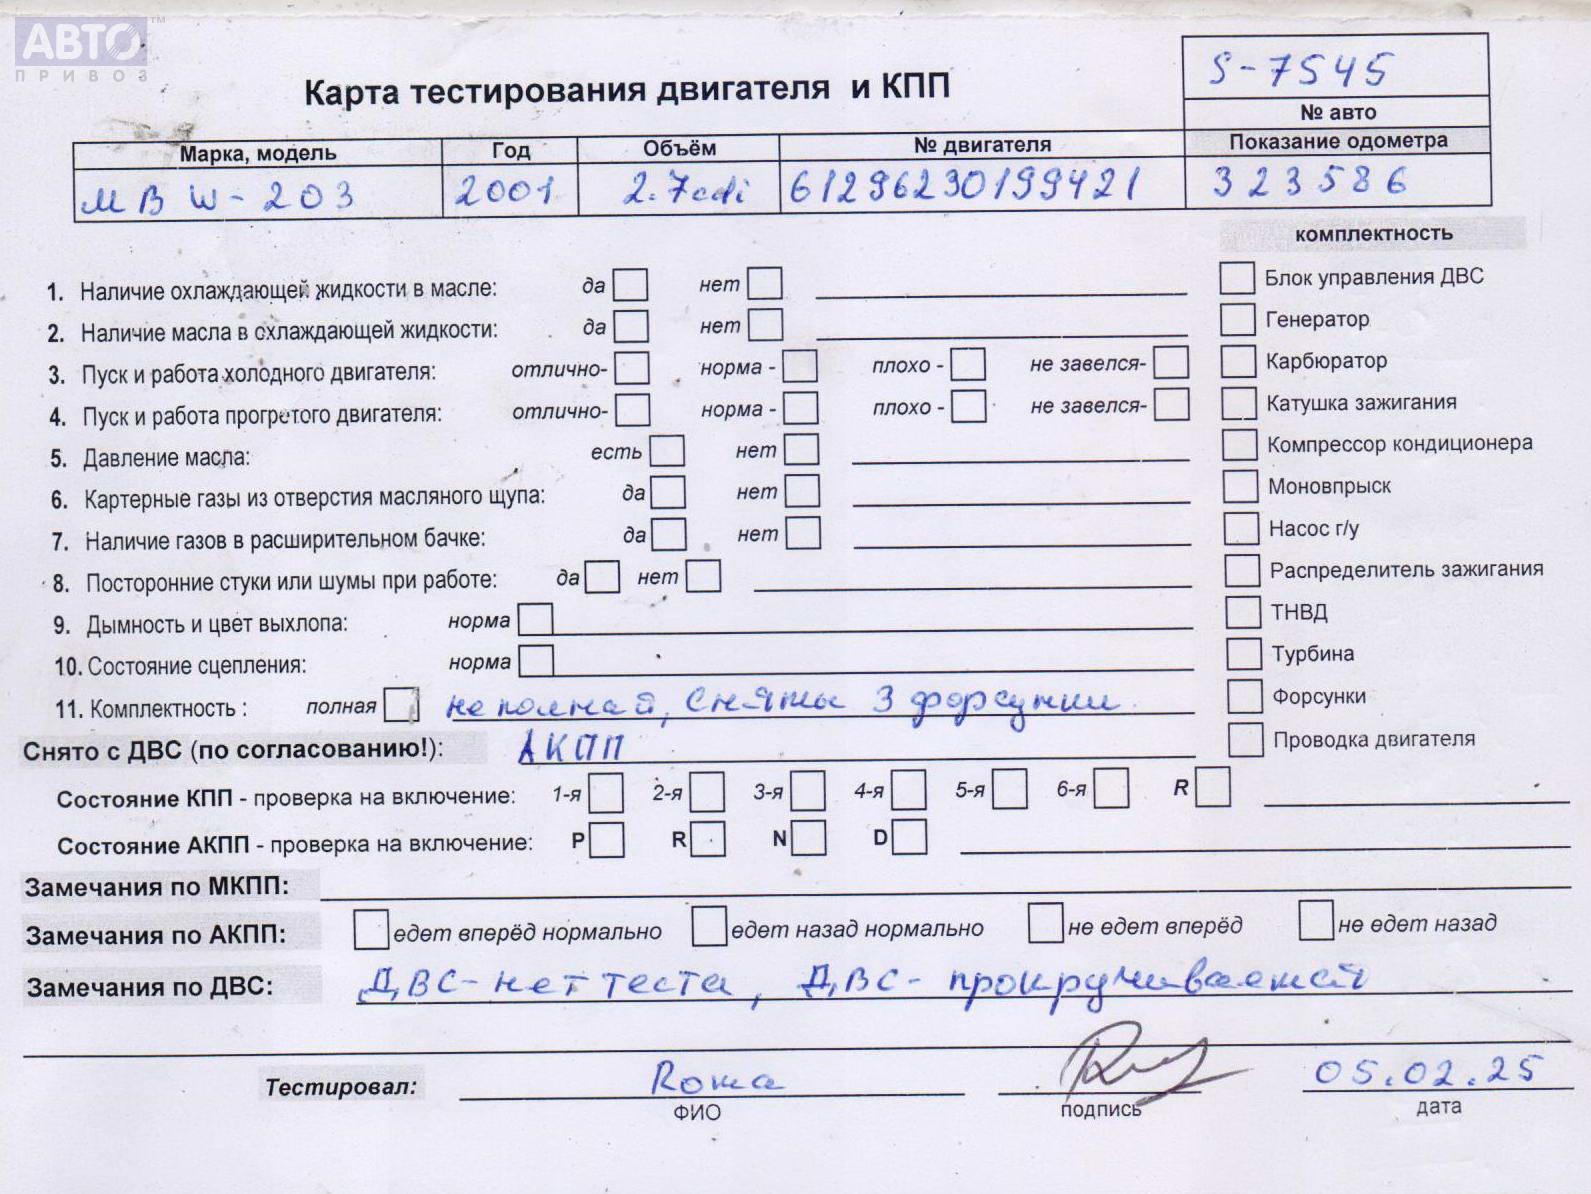 АВТО™
ПРИВОЗ
S-7545
Карта тестирования двигателя и КПП
№ авто
Марка, модель Год Объём № двигателя Показание одометра
МВ W-203 2001 2.7cdi 61296230199421 323586
комплектность
1. Наличие охлаждающей жидкости в масле: да нет Блок управления ДВС
2. Наличие масла в охлаждающей жидкости: да нет Генератор
3. Пуск и работа холодного двигателя: отлично- норма - плохо - не завелся- Карбюратор
4. Пуск и работа прогретого двигателя: отлично- норма - плохо - не завелся- Катушка зажигания
5. Давление масла: есть нет Компрессор кондиционера
6. Картерные газы из отверстия масляного щупа: да нет Моновпрыск
7. Наличие газов в расширительном бачке: да нет Насос г/у
8. Посторонние стуки или шумы при работе: да нет Распределитель зажигания
9. Дымность и цвет выхлопа: норма ТНВД
10. Состояние сцепления: норма Турбина
11. Комплектность : полная не полная, сняты 3 форсунки Форсунки
Снято с ДВС (по согласованию!): АКПП Проводка двигателя
Состояние КПП - проверка на включение: 1-я 2-я 3-я 4-я 5-я 6-я R
Состояние АКПП - проверка на включение: P R N D
Замечания по МКПП:
Замечания по АКПП: едет вперёд нормально едет назад нормально не едет вперёд не едет назад
Замечания по ДВС: ДВС-нет теста, ДВС- прокручивается
Тестировал: Рома 05.02.25
ФИО подпись дата